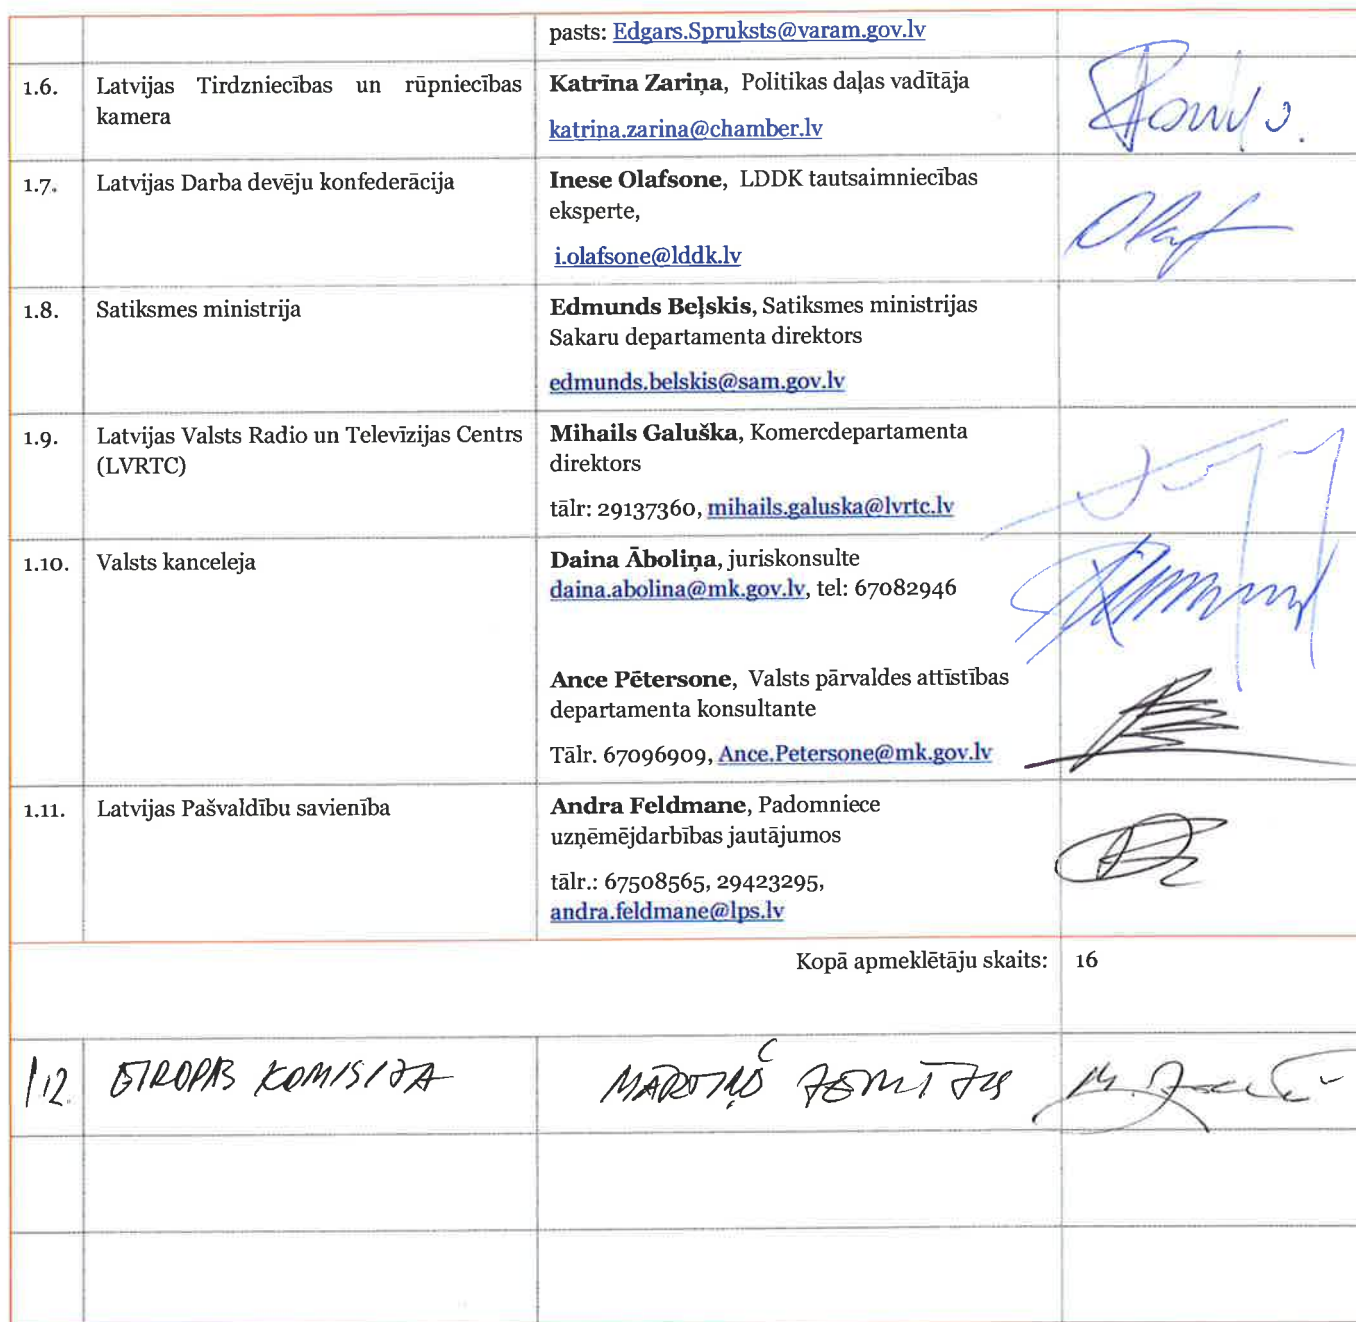 pasts: Edgars.Spruksts@varam.gov.lv
1.6.
Latvijas Tirdzniecības un rūpniecības
kamera
Katrīna Zariņa, Politikas daļas vadītāja
katrina.zarina@chamber.lv
1.7.
Latvijas Darba devēju konfederācija
Inese Olafsone, LDDK tautsaimniecības
eksperte,
i.olafsone@lddk.lv
1.8.
Satiksmes ministrija
Edmunds Beļskis, Satiksmes ministrijas
Sakaru departamenta direktors
edmunds.belskis@sam.gov.lv
1.9.
Latvijas Valsts Radio un Televīzijas Centrs
(LVRTC)
Mihails Galuška, Komercdepartamenta
direktors
tālr: 29137360, mihails.galuska@lvrtc.lv
1.10.
Valsts kanceleja
Daina Āboliņa, juriskonsulte
daina.abolina@mk.gov.lv, tel: 67082946
Ance Pētersone, Valsts pārvaldes attīstības
departamenta konsultante
Tālr. 67096909, Ance.Petersone@mk.gov.lv
1.11.
Latvijas Pašvaldību savienība
Andra Feldmane, Padomniece
uzņēmējdarbības jautājumos
tālr.: 67508565, 29423295,
andra.feldmane@lps.lv
Kopā apmeklētāju skaits: 16
112.
EIROPAS KOMISIJA
MĀRTIŅŠ ZEMĪTIS